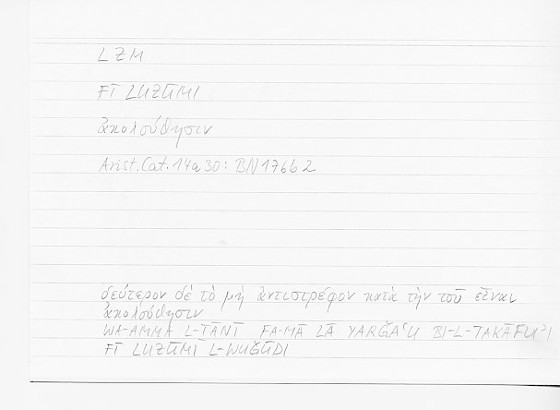 LZM
FĪ LUZŪMI
ἀκολούθησιν
Arist. Cat. 14a30: BN 176b2
δεύτερον δὲ τὸ μὴ ἀντιστρέφον κατὰ τὴν τοῦ εἶναι
ἀκολούθησιν
WA-AMMĀ L-ṮĀNĪ FA-MĀ LĀ YARǦAʿU BI-L-TAKĀFUʾI
FĪ LUZŪMI L-WUǦŪDI